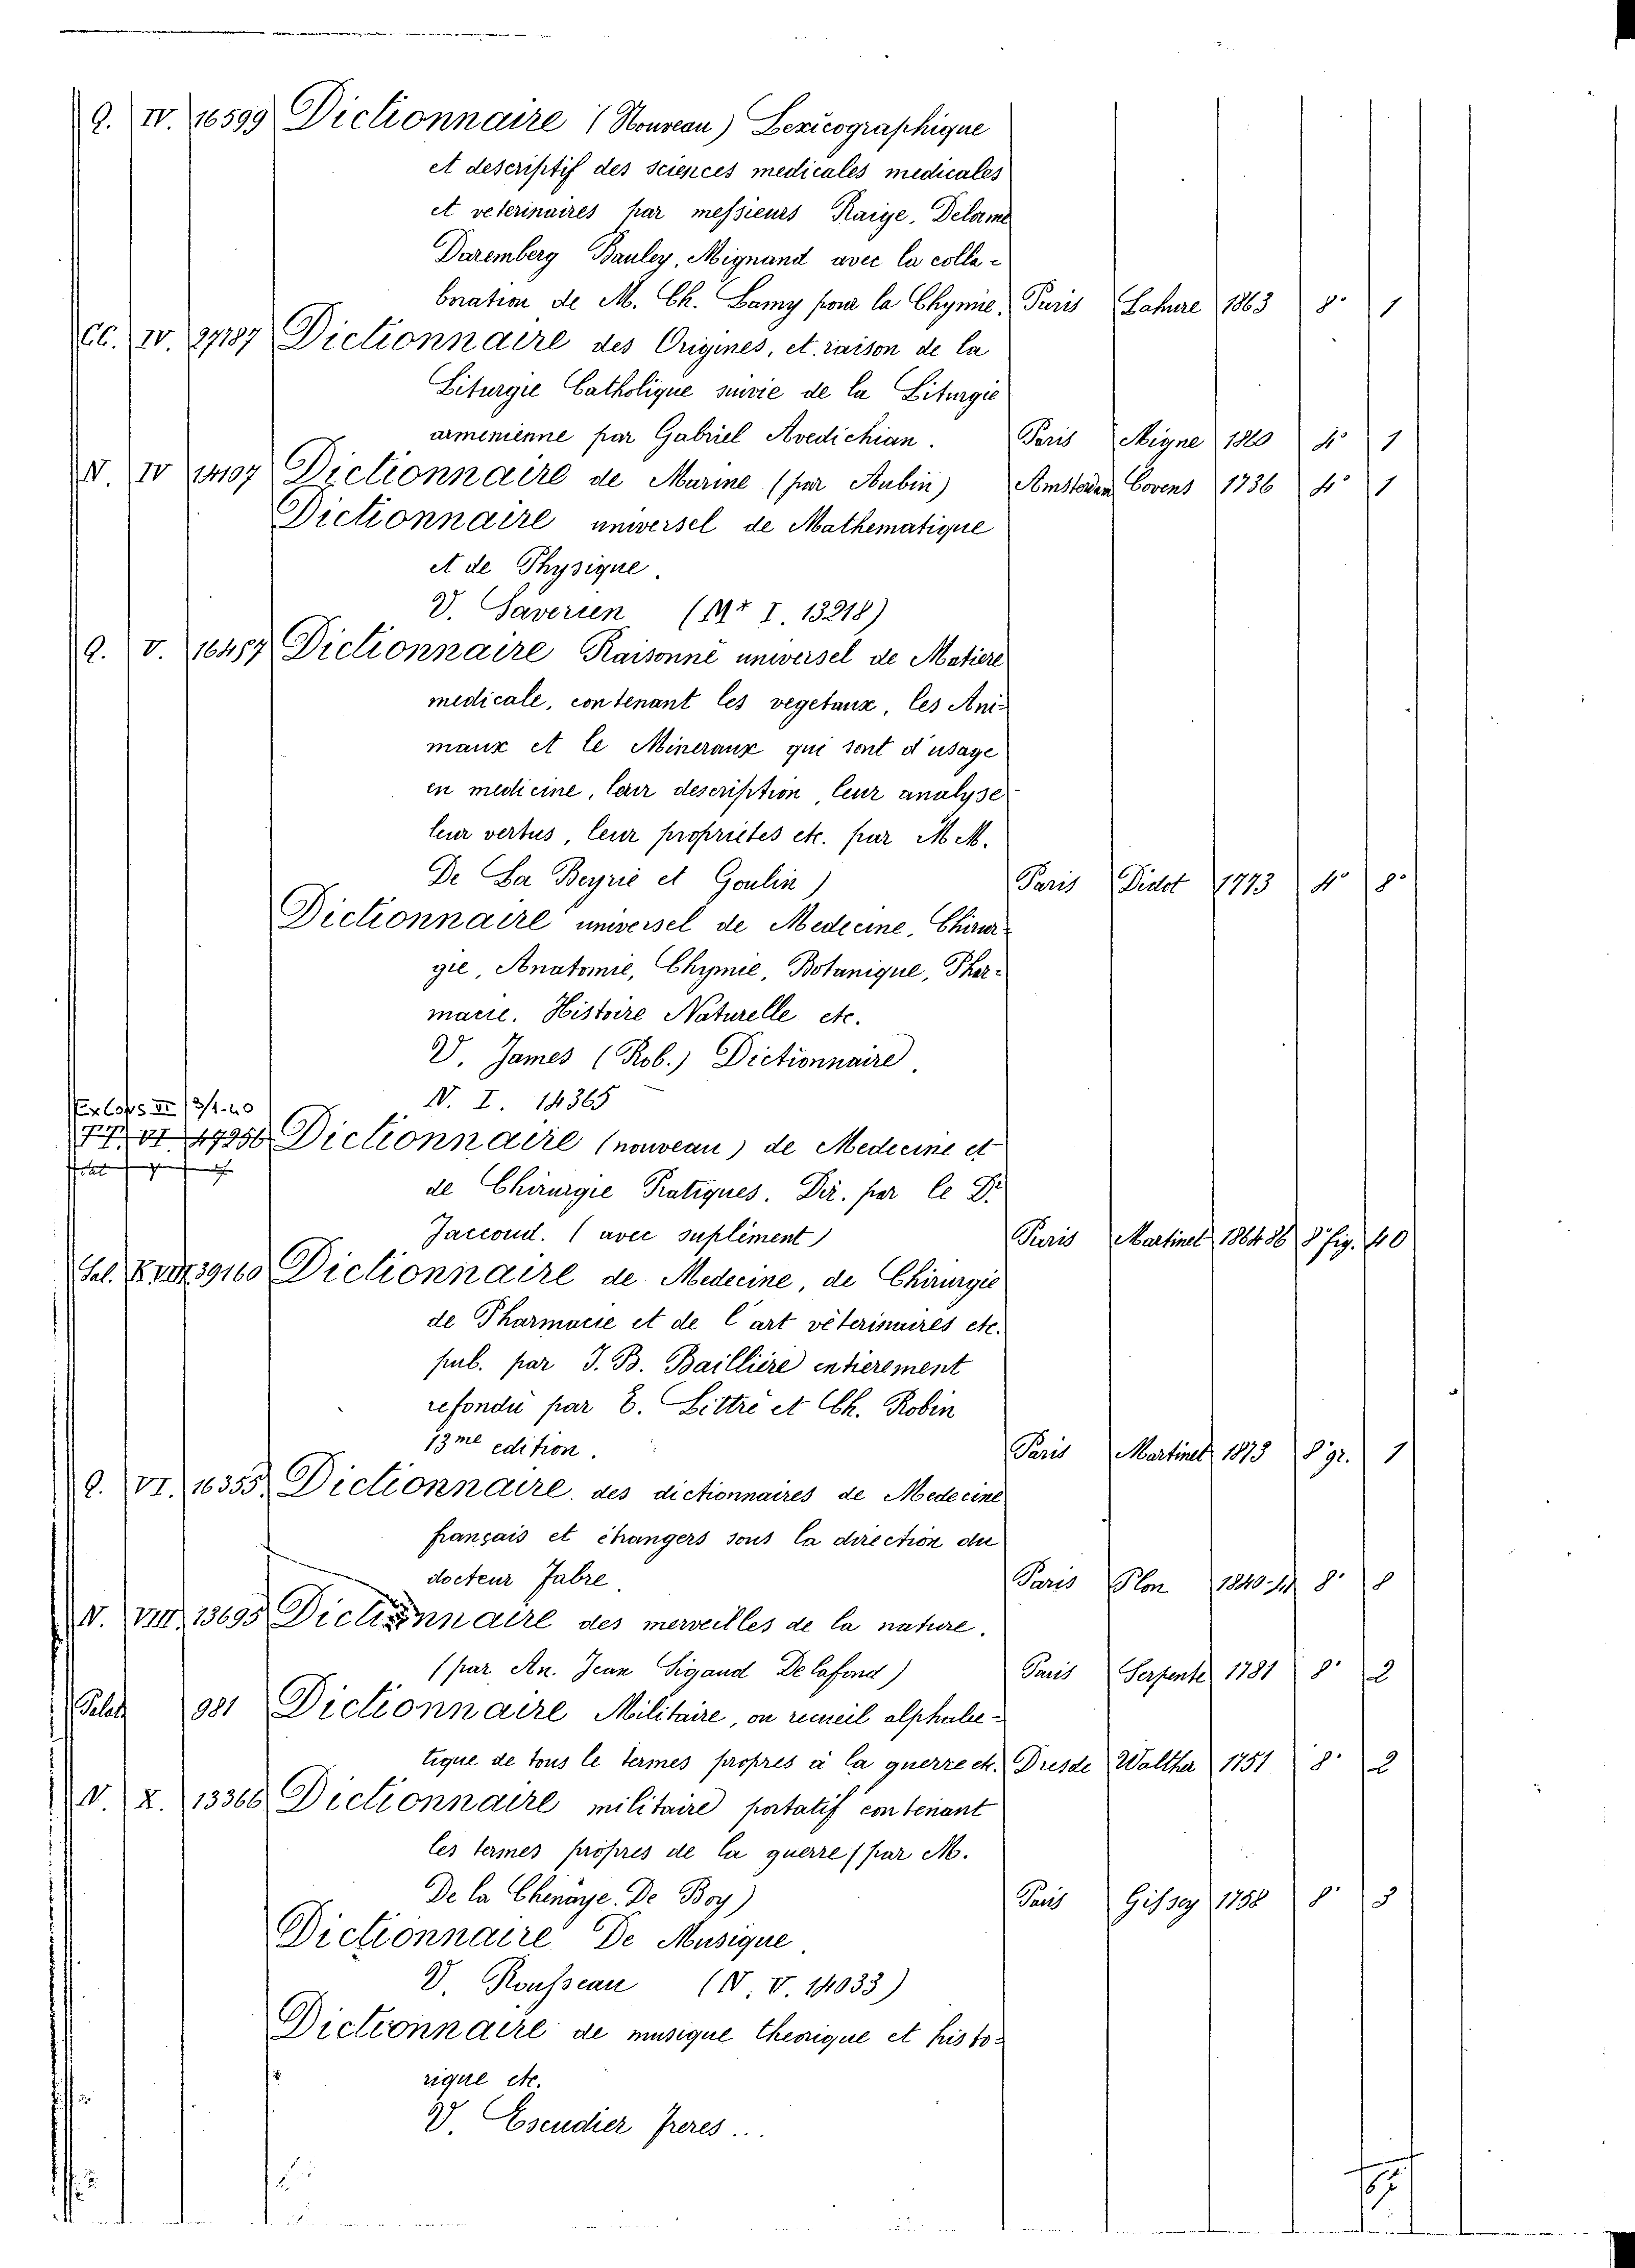 Q. IV. 16599 Dictionnaire (Nouveau) Lexicographique
et descriptif des sciences medicales medicales
et veterinaires par messieurs Raige. Delorme
Daremberg Bauley, Mignand avec la colla-
boration de M. Ch. Lamy pour la Chymie. Paris Lahure 1863 8° 1
CC. IV. 27187 Dictionnaire des Origines, et raison de la
Liturgie Catholique suivie de la Liturgie
armenienne par Gabriel Avedichian. Paris Migne 1860 4° 1
N. IV 14107 Dictionnaire de Marine (par Aubin) Amsterdam Covens 1736 4° 1
Dictionnaire universel de Mathematique
et de Physique.
V. Saverien (Nr I. 13218)
Q. V. 16457 Dictionnaire Raisonné universel de Matiere
medicale, contenant les vegetaux, les Ani-
maux et le Mineraux qui sont d'usage
en medicine, leur description, leur analyse
leur vertus, leur proprietes etc. par M M.
De La Beyrie et Goulin) Paris Didot 1773 4° 8°
Dictionnaire universel de Medecine, Chirur-
gie, Anatomie, Chymie, Botanique, Phar-
macie. Histoire Naturelle etc.
V. James (Rob.) Dictionnaire.
N. I. 14365
VI 47256 Dictionnaire (nouveau) de Medecine et
de Chirurgie Pratiques. Dir. par le Dr
Jaccoud. (avec supliment) Paris Martinet 1864 86 8° fig. 40
Sal. XVIII 39160 Dictionnaire de Medecine, de Chirurgie
de Pharmacie et de l'art véterinaires etc.
pub. par J. B. Baillière entierement
refondu par E. Littré et Ch. Robin
13me edition. Paris Martinet 1873 8° gr. 1
Q. VI. 16355 Dictionnaire des dictionnaires de Medecine
français et étrangers sous la direction du
docteur Fabre. Paris Plon 1840-41 8° 8
N. VIII. 13695 Dictionnaire des merveilles de la nature.
(par An. Jean Sigaud De lafond) Paris Serpente 1781 8° 2
Palat 981 Dictionnaire Militaire, ou recueil alphabe-
tique de tous le termes propres à la guerre etc. Dresde Walther 1751 8° 2
N. X. 13366 Dictionnaire militaire portatif contenant
les termes propres de la guerre (par M.
De la Chenaye. De Boy) Paris Gissey 1758 8° 3
Dictionnaire De Musique.
V. Rousseau (N. V. 14033)
Dictionnaire de musique theorique et histo-
rique etc.
V. Escudier freres...